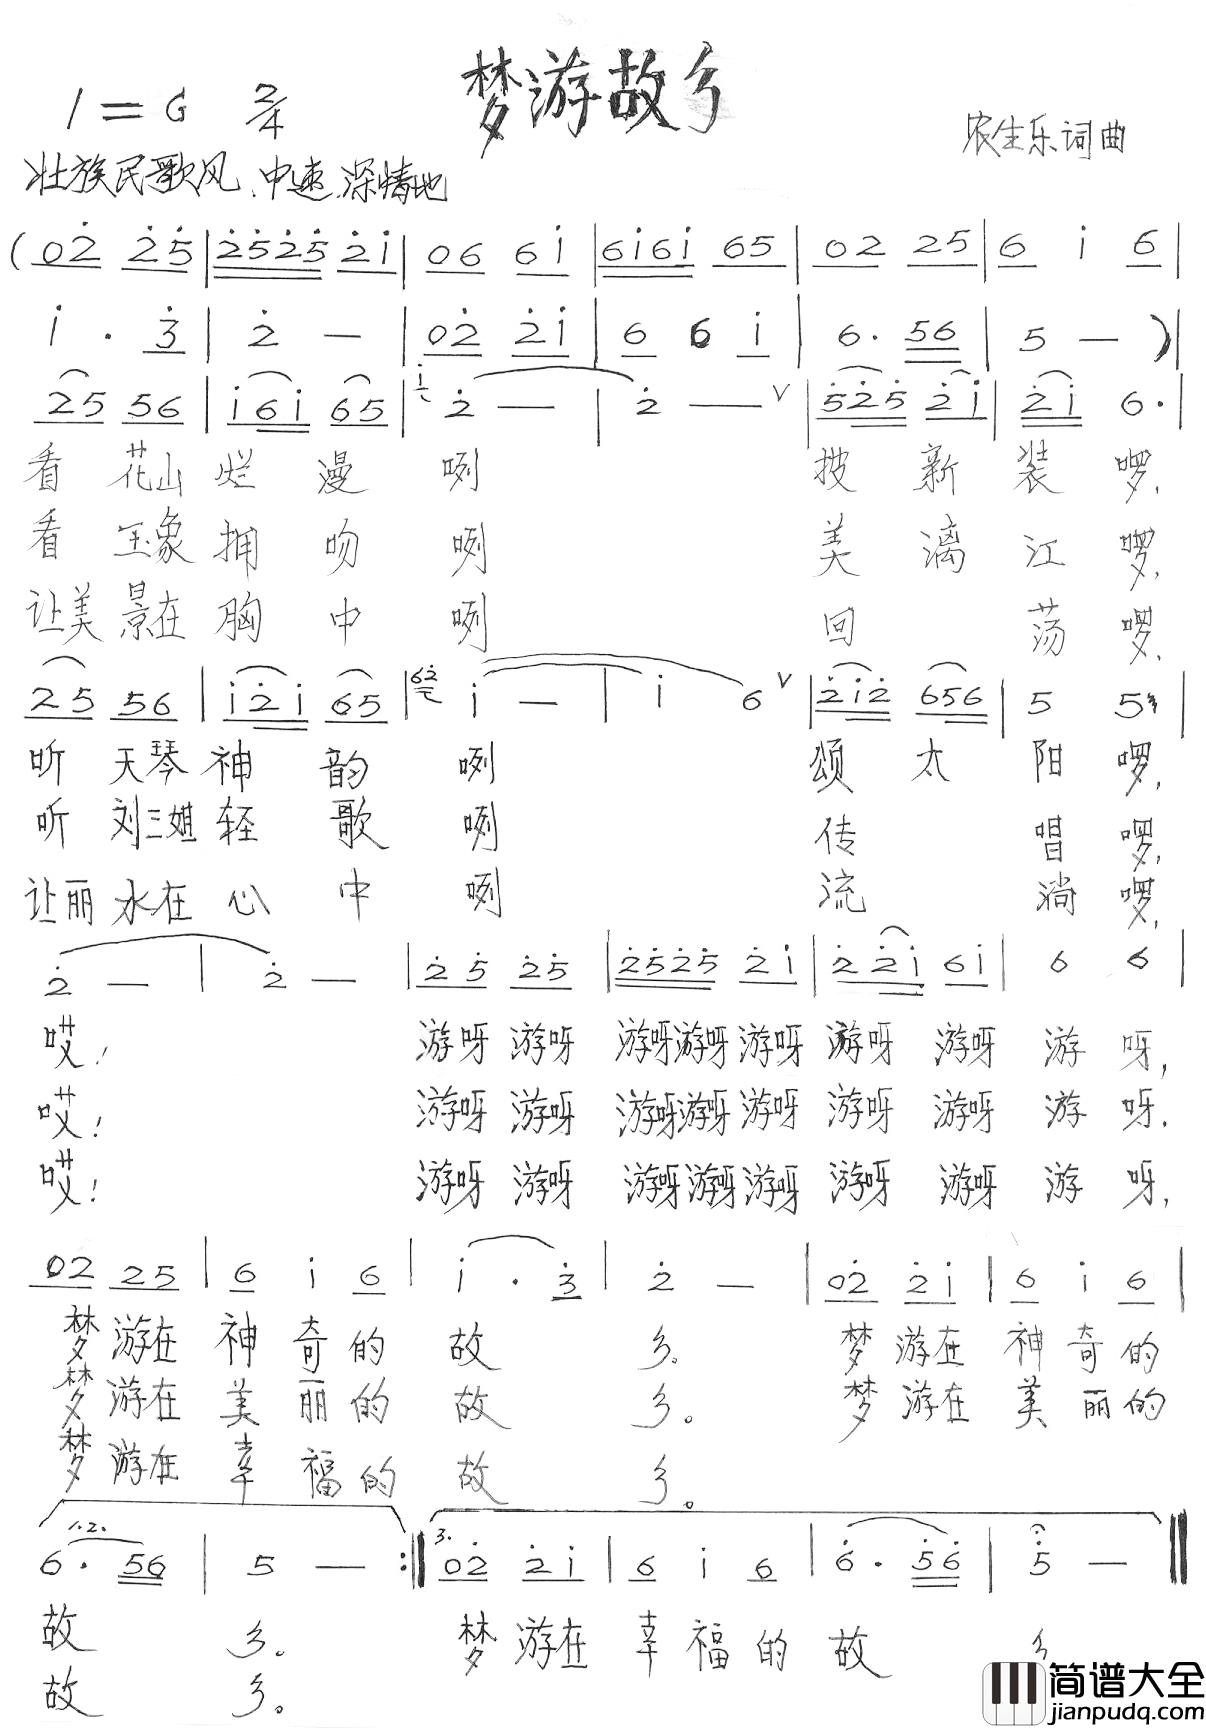 梦游故乡
1=G 2/4
农生乐词曲
壮族民歌风、中速、深情地
(02̇ 2̇5̇ | 2̇5̇2̇5̇ 2̇i | 06 6i | 6i6i 65 | 02 25 | 6 i 6 |
i · 3̇ | 2̇ — | 02̇ 2̇i | 6 6 i | 6· 56 | 5 — )|
25 56 | i6i 65 | i 2̇ — | 2̇ — ∨ | 5̇2̇5̇ 2̇i | 2̇i 6· |
看 花山 烂 漫 咧 披 新 装 啰,
看 玉象 拥 吻 咧 美 漓 江 啰,
让美 景在 胸 中 咧 回 荡 啰,
25 56 | i2̇i 65 | 62̇ i — | i 6 ∨ | 2̇i2̇ 656 | 5 5 |
听 天琴 神 韵 咧 颂 太 阳 啰,
听 刘三姐 轻 歌 咧 传 唱 啰,
让丽 水在 心 中 咧 流 淌 啰,
2̇ — | 2̇ — | 2̇5̇ 2̇5̇ | 2̇5̇2̇5̇ 2̇i | 2̇2̇i 6i | 6 6 |
哎! 游呀 游呀 游呀游呀游呀 游呀 游呀 游 呀,
哎! 游呀 游呀 游呀游呀游呀 游呀 游呀 游 呀.
哎! 游呀 游呀 游呀游呀游呀 游呀 游呀 游 呀,
02 25 | 6 i 6 | i · 3̇ | 2̇ — | 02̇ 2̇i | 6 i 6 |
梦 游在 神 奇 的 故 乡。 梦 游在 神 奇 的
梦 游在 美 丽 的 故 乡。 梦 游在 美 丽 的
梦 游在 幸 福 的 故 乡。
1.2. 6· 56 | 5 — :‖ 3. 02̇ 2̇i | 6 i 6 | 6̇· 5̇6̇ | 5̇ — ‖
故 乡。 梦 游在 幸 福 的 故 乡
故 乡。
简谱大全
jianpudq.com